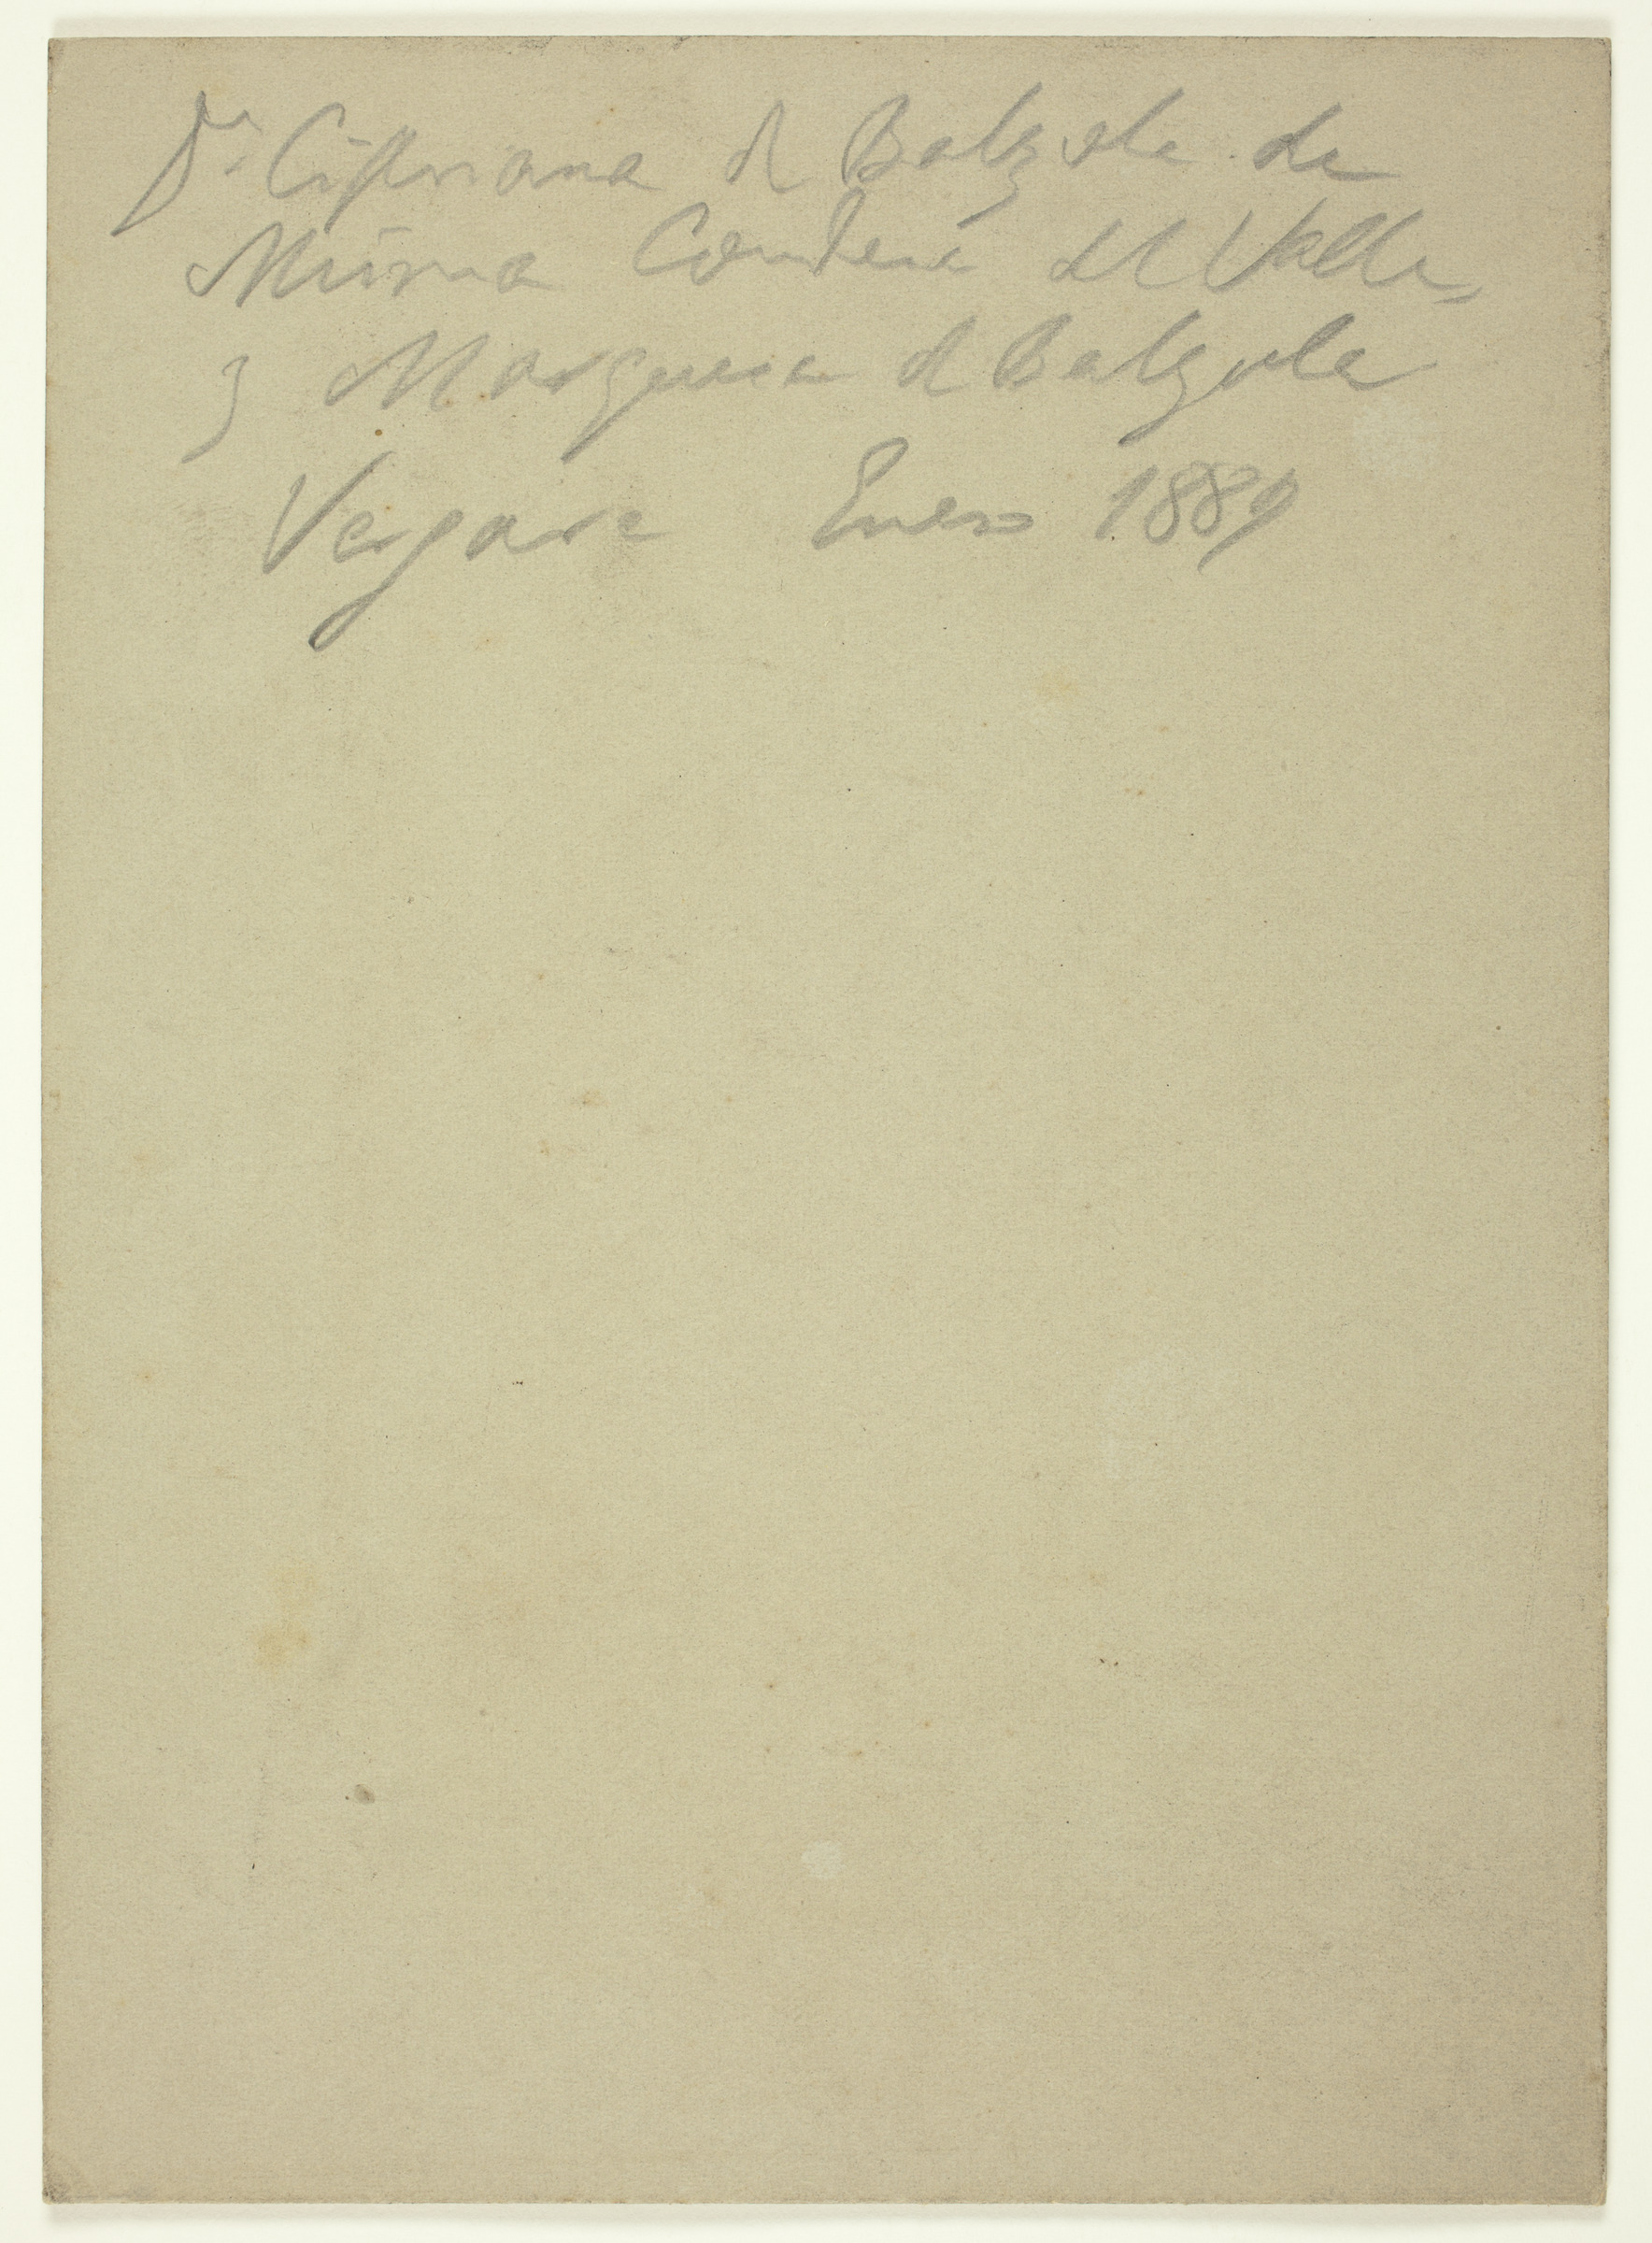 Dª Cipriana d Balzola de
Murua Condesa del Valle,
y Marquesa d Balzola
Vergara Enero 1889